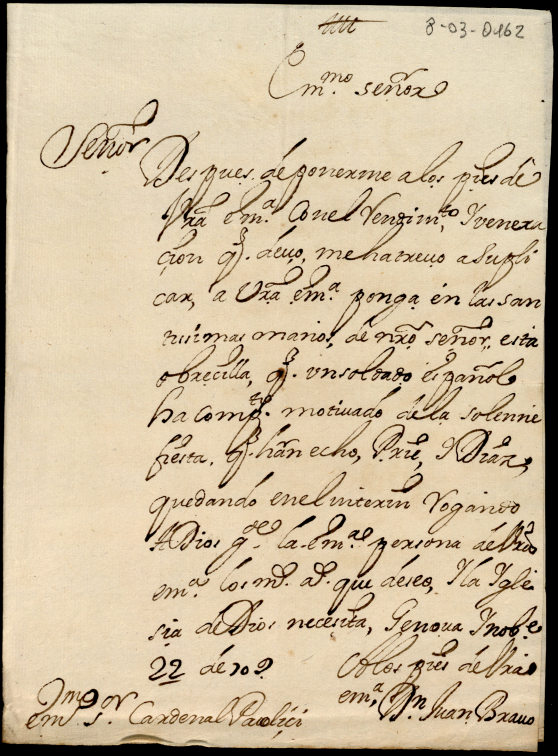 8-03-0162
Em.mo señor
Señor
Despues de ponerme a los pies de
Vrã em.a con el Rendim.to, I venera
cion q.e devo, me hatrevo a Supli
car, a Vrã em.a ponga en las san
tissimas manos, de nrõ señor, esta
obrecilla, q.e un soldado español
ha comp.to motivado de la solenne
fiesta, q.e han echo,
quedando en el interim Rogando
A Dios g.e la em.a persona de Vrã
em.a los m.s a.s que deseo, I la Igle
sia de Dios necesita, Genova I nob.e
22 de 709
A los pies de Vrã
em.a Dn Juan Bravo
em.mo S.or Cardenal Paoluci